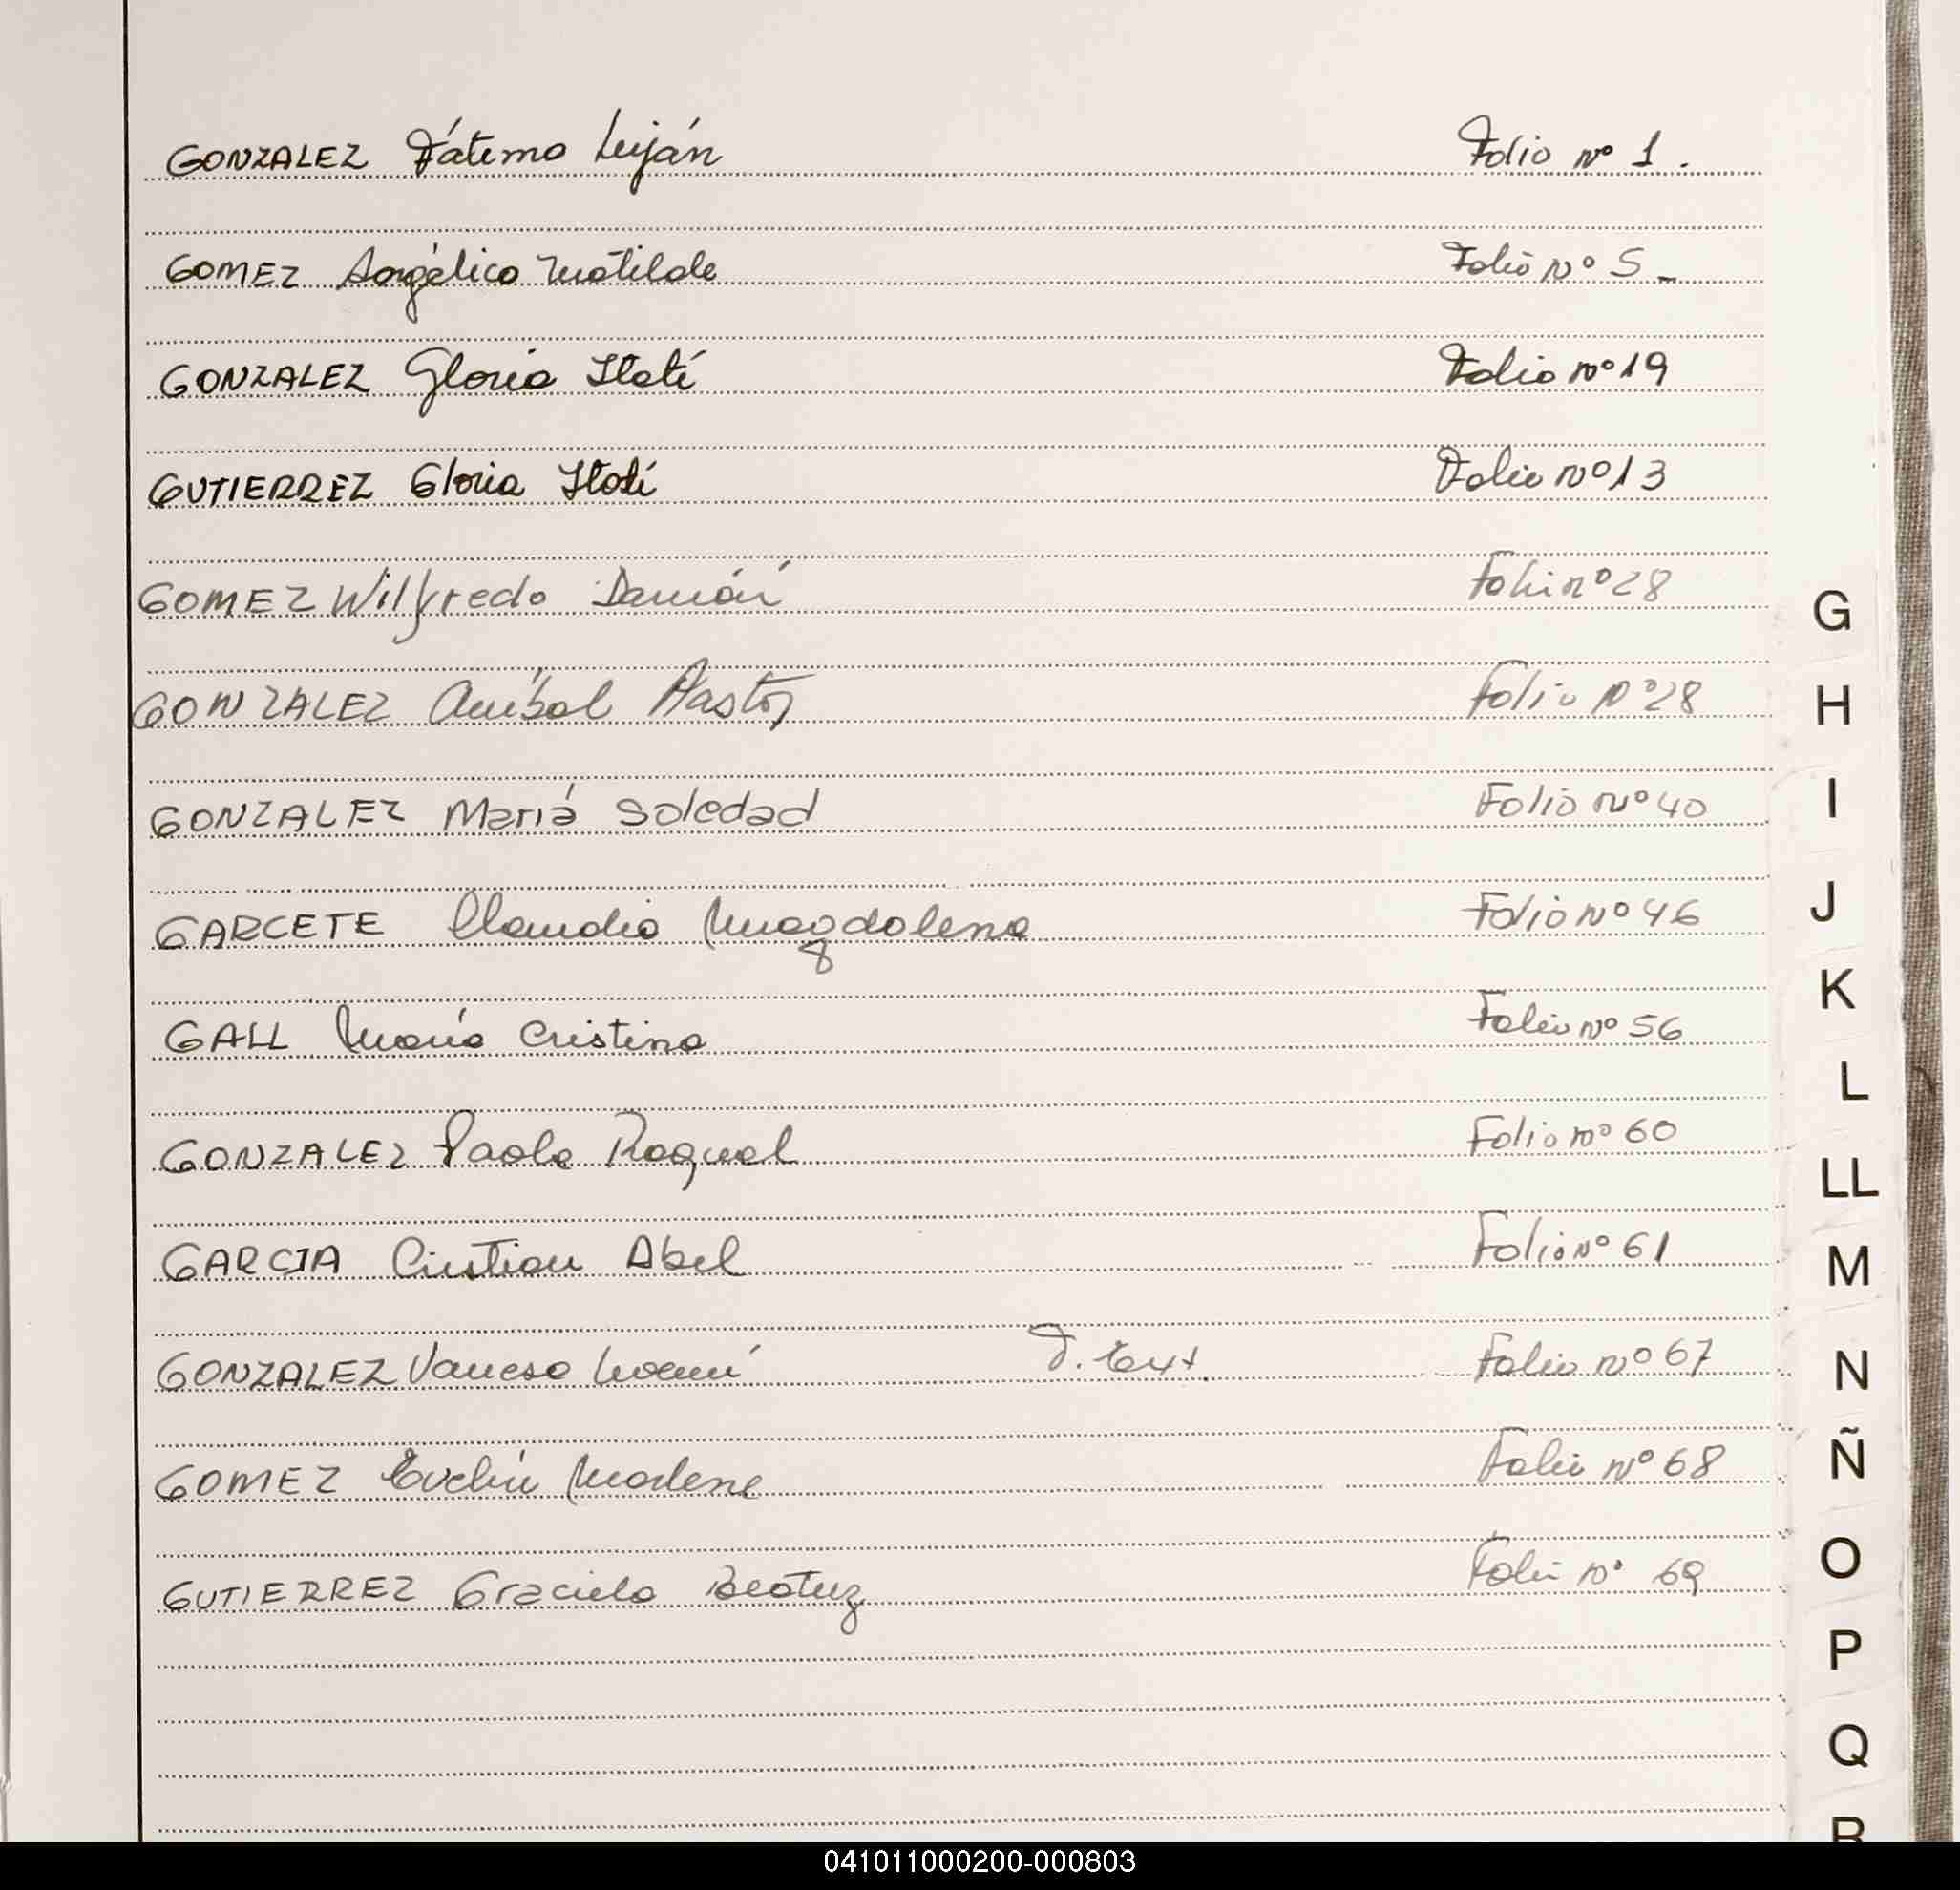 GONZALEZ Fátima Luján Folio nº 1.
GOMEZ Angélica Matilde Folio Nº 5_
GONZALEZ Gloria Itatí Folio nº 19
GUTIERREZ Gloria Itatí Folio nº 13
GOMEZ Wilfredo Damián Folio nº 28
GONZALEZ Aníbal Pastor Folio Nº 28
GONZALEZ María Soledad Folio Nº 40
GARCETE Claudia Magdalena Folio Nº 46
GALL María Cristina Folio Nº 56
GONZALEZ Paola Raquel Folio nº 60
GARCIA Cristian Abel Folio Nº 61
GONZALEZ Vanesa Noemí Folio Nº 67
GOMEZ Evelin Marlene Folio Nº 68
GUTIERREZ Graciela Beatriz Folio Nº 69
G
H
I
J
K
L
LL
M
N
Ñ
O
P
Q
R
041011000200-000803